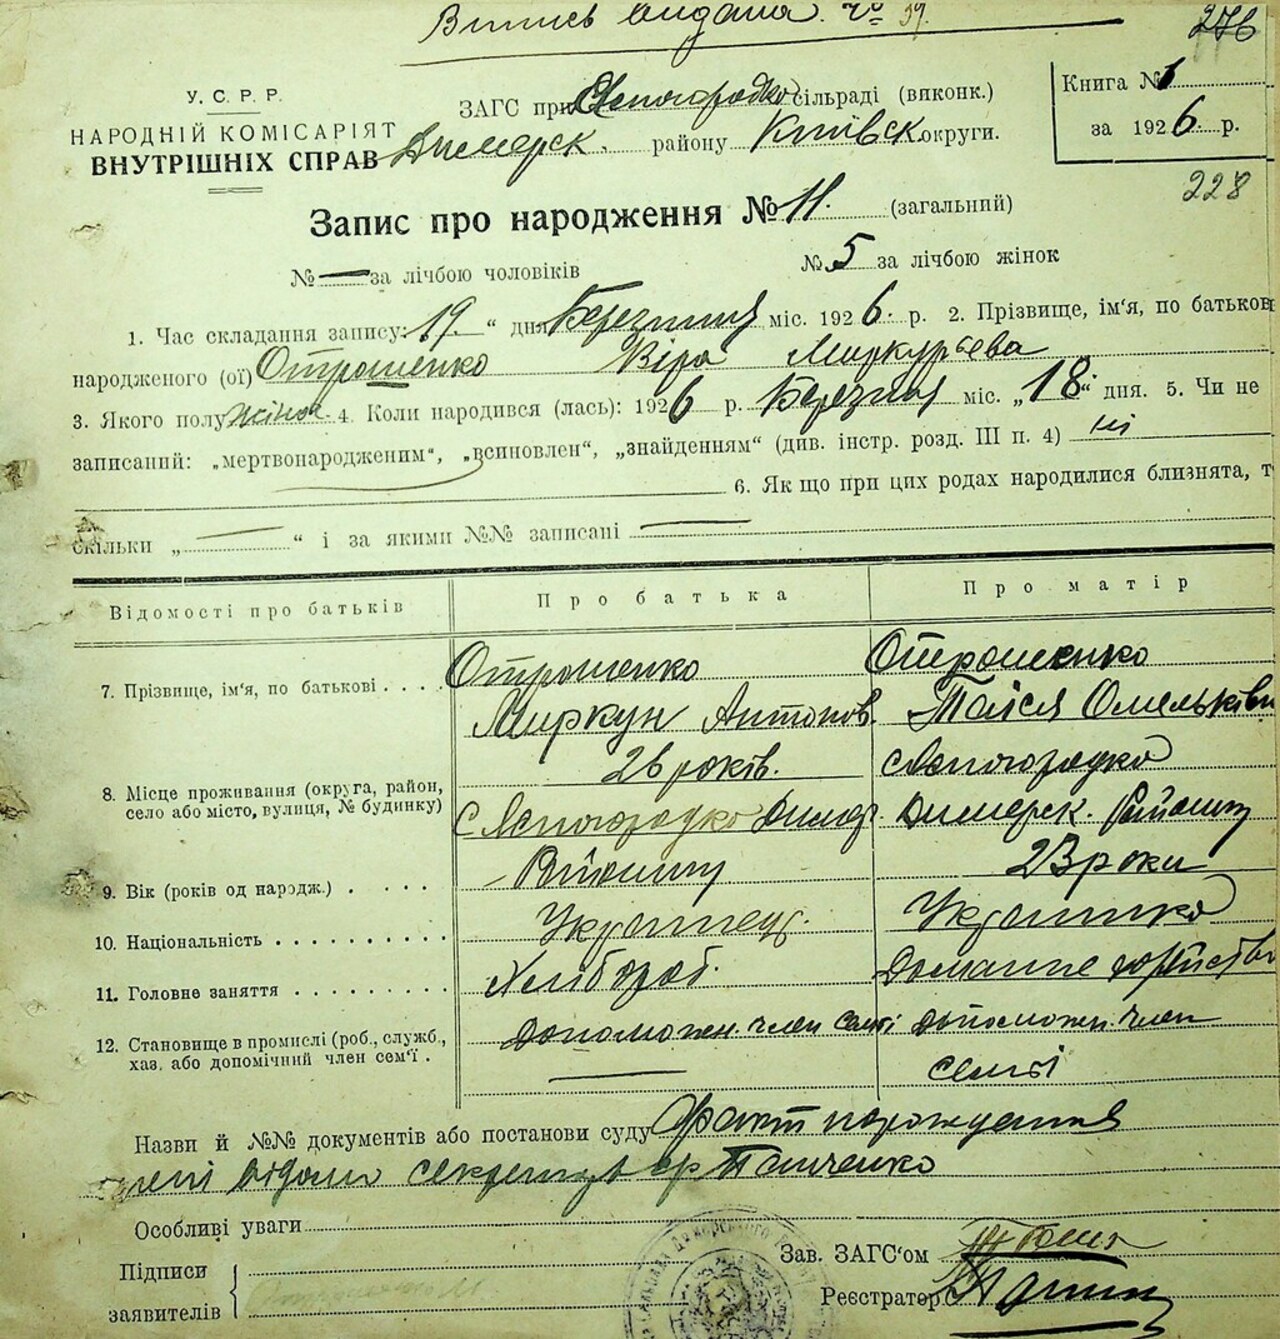 Випись видана. № 39.
276
У. С. Р. Р.
НАРОДНІЙ КОМІСАРІЯТ
ВНУТРІШНІХ СПРАВ
ЗАГС при Ясногородко сільраді (виконк.)
Димерск. району Київск округи.
Книга № 1
за 1926 р.
228
Запис про народження № 11. (загальний)
№ — за лічбою чоловіків № 5 за лічбою жінок
1. Час складання запису: 19. “ дня Березния міс. 1926. р. 2. Прізвище, ім'я, по батькові
народженого (ої) Отрошенко Віра Миркурьева
3. Якого полу жіноч. 4. Коли народився (лась): 1926 р. Березния міс. „18“ дня. 5. Чи не
записаний: „мертвонародженим“, „всиновлен“, „знайденням“ (див. інстр. розд. III п. 4) ні
6. Як що при цих родах народилися близнята, т
скільки „ — “ і за якими №№ записані —
Відомості про батьків Про батька Про матір
7. Прізвище, ім'я, по батькові . . . . Отрошенко Отрошенко
Миркун Антонов. Таїся Омельківн
26 років. с Ясногородко
8. Місце проживання (округа, район,
село або місто, вулиця, № будинку) с Ясногородко Димер. Димерск. Району
9. Вік (років од народж.) . . . . . Району 23 роки
10. Національність . . . . . . . . . . Українец. Українко
11. Головне заняття . . . . . . . . . Хлібороб. Домашне
12. Становище в промислі (роб., служб., допоможен. член семї допоможен. член
хаз. або допомічний член сем'ї . — семї
Назви й №№ документів або постанови суду Факт нарождения
мені відом секретар Панченко
Особливі уваги
Підписи
заявителів
Зав. ЗАГС'ом
Реєстратор